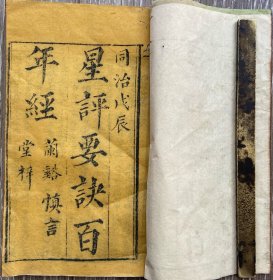 同治戊辰
星評要訣百
年經
蘭谿慎言
堂梓